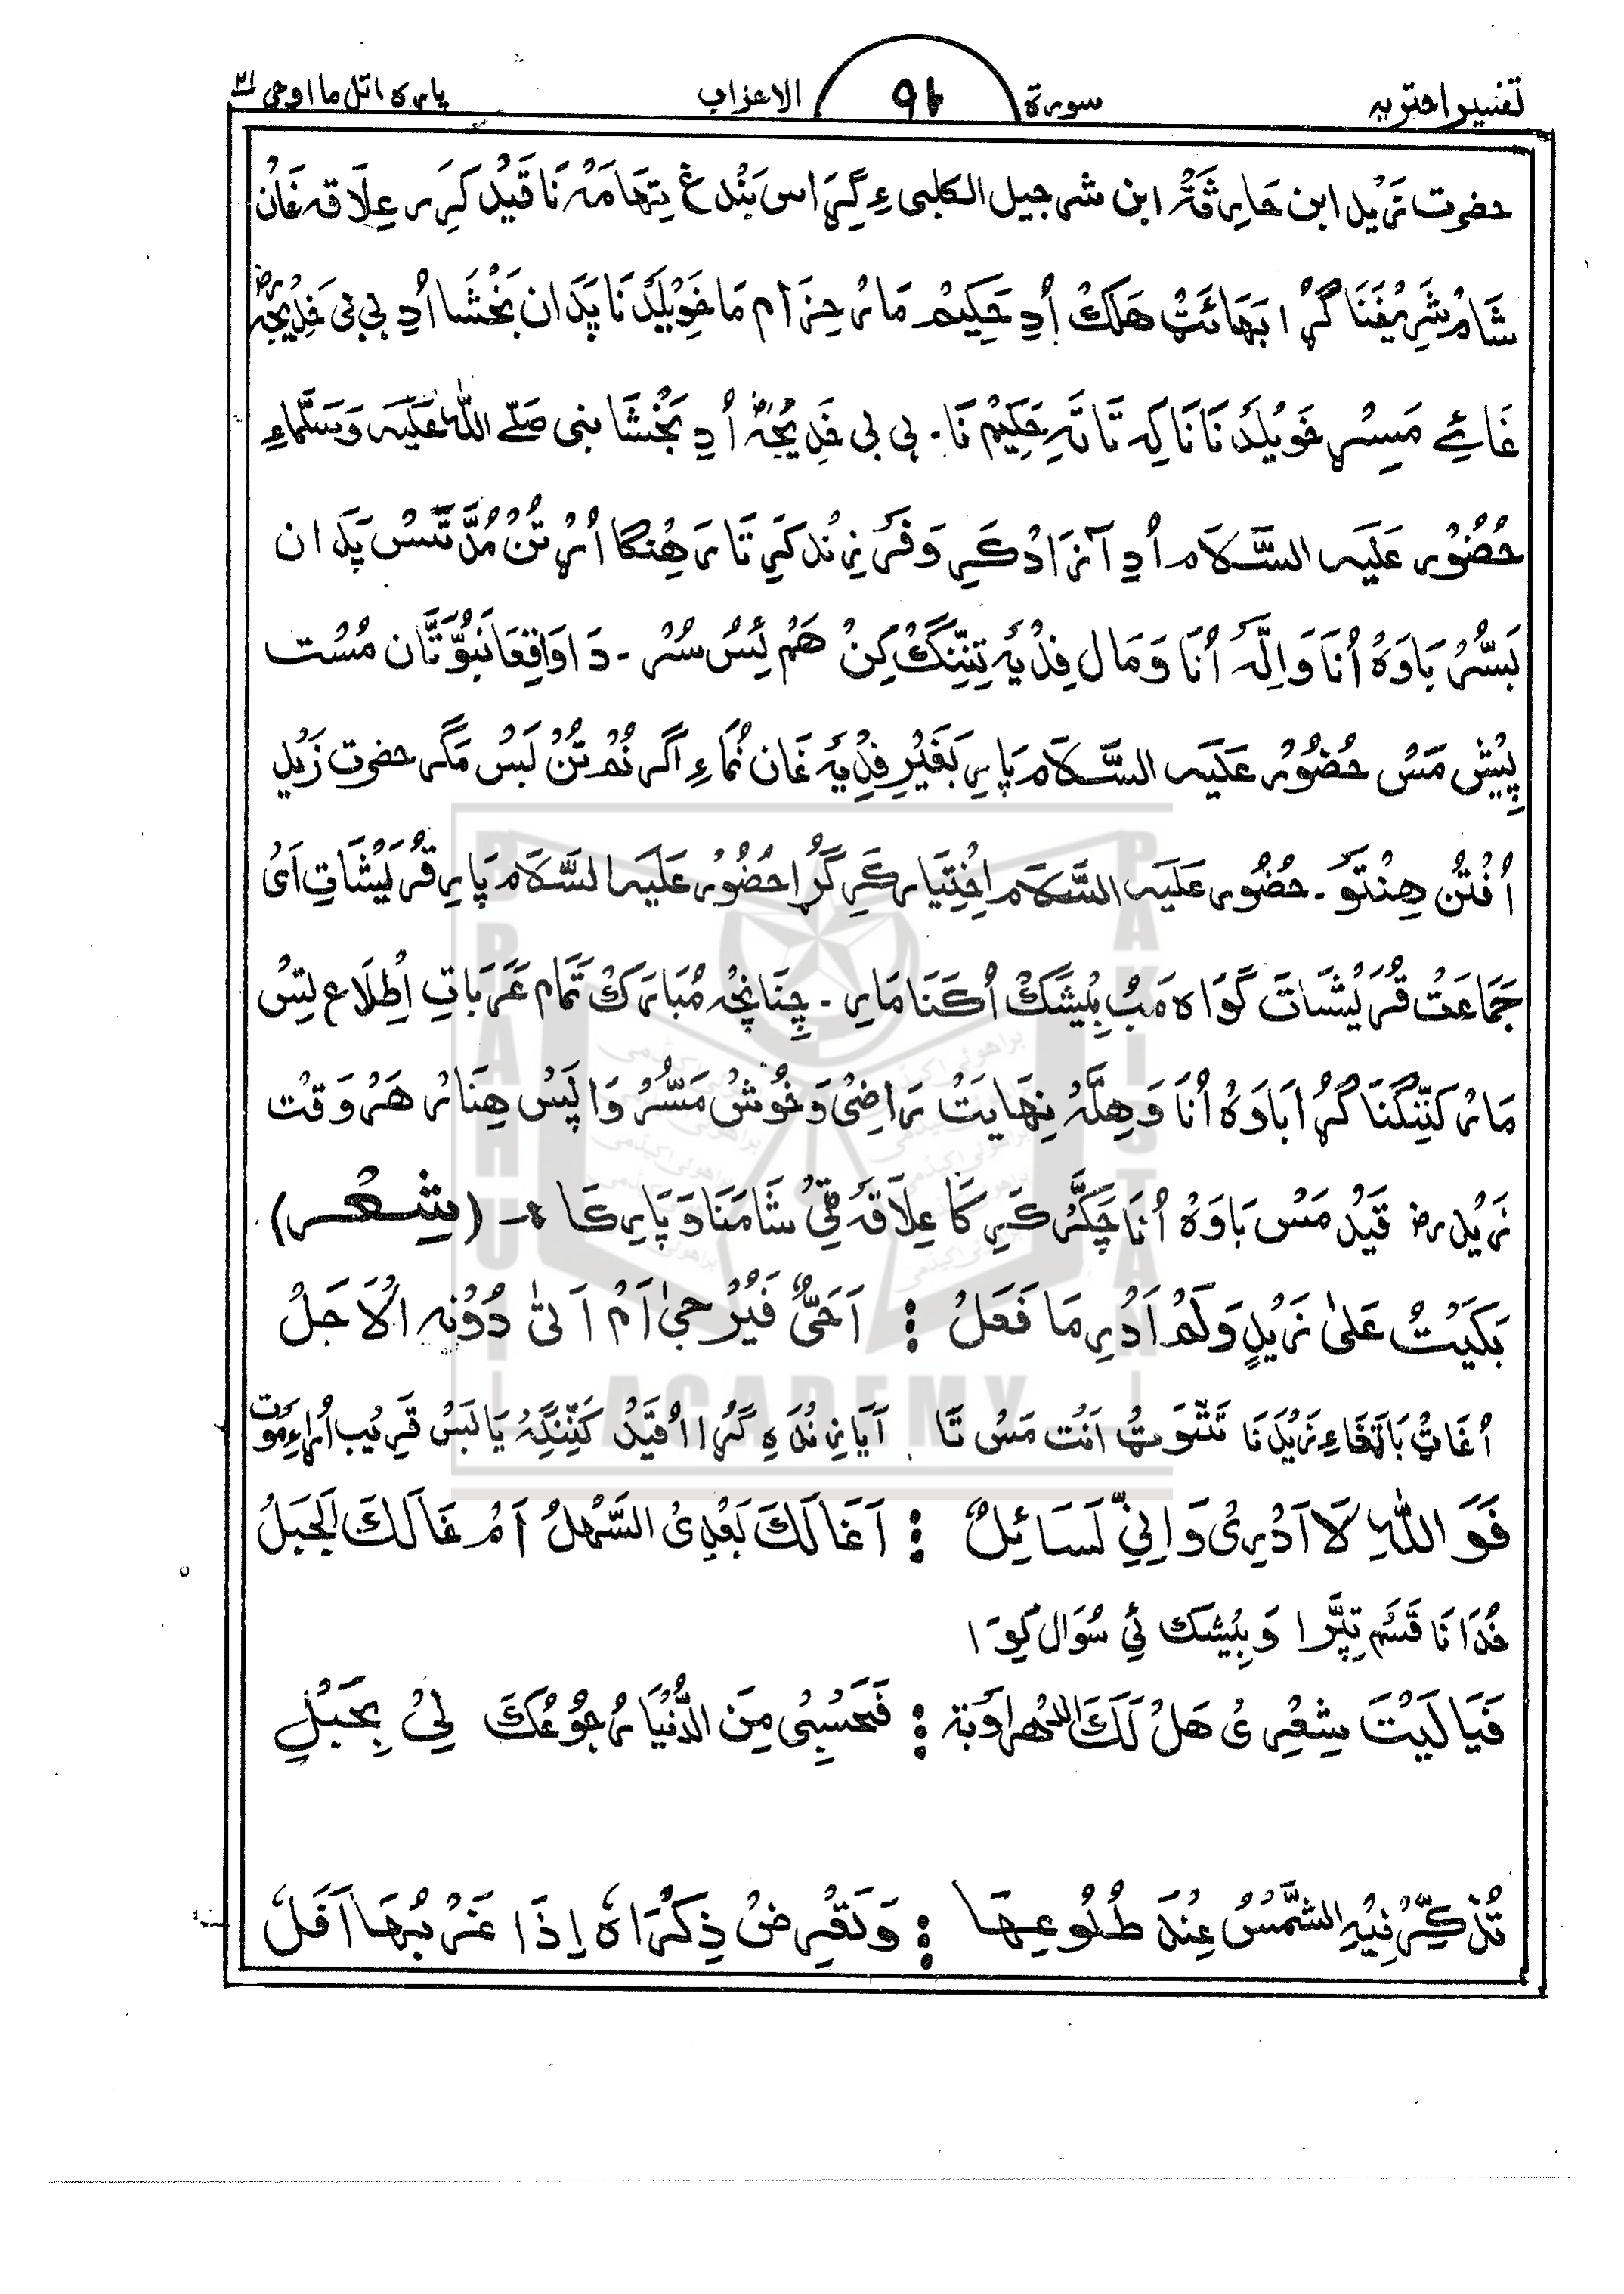 تفسیر اختریہ سورۃ ۹۴ الاعزاب پارہ اتل ما اوحی ۲۱
حضرت زَیْد ابن حَارِثَہْ ابن شرجیل الکلبی ءِ گِہَرَ اس بَنْدغ تِہَامَہْ نَا قَیْد کَرِیر عِلَاقہ غَانْ
شَامْ شَرِیْفَنَا گُہرُا بَہَائَتْ ھَلَکْ اُدِ حَکِیْم مَارْ حِزَام مَا خَوِیْلَدْنَا پَدَان بَخْشَا اُدِ بی بی خَدِیْجَہْ رض
غَائِے مَسِہُر خَوِیْلَدْ نَانَا کِہ تَاتَہِ حَکِیْم نَا۔ بی بی خَدِیْجَہْ اُدِ بَخْشَا نبی صَلّے اللّٰہُ عَلَیْہ وَسَلَّماءِ
حُضُوْر عَلَیْہ السَّلَام اُدِ آزَادْ کَرِ وَفَرْزِنْد کَرِ تَا رَھِنْگا اُرْ تُنْ مُدَّتَسْ پَدَان
بَسُّرْ بَاوَہْ اُنَا وَاِلَّہ اُنَا وَمَال فِدْیَہ تِنِّنْگ کِنْ ھَمْ ئِسُ سُرْ۔ دَاوَاقِعَا نَبُوَّتَان مُسْت
پِیْش مَسْ حُضُوْر عَلَیْہ السَّلَام پَارِ بَغَیْر فِدِیَہ غَان نُمَاءِ اگر نُمْ تُنْ بَسْ مَگر حضرت زَیْد
اُفْتُن ھِنْتَوْ۔ حُضُوْر عَلَیْہ السَّلَام اِخْتِیَار کَرِ گُرُا حُضُوْر عَلَیْہ السَّلَام پَارِ قُرَیْشَاتِ اَیْ
جَمَاعَتْ قُرَیْشَّاتَ گَوَاہ مَبْ بِیْشَکْ اُکَنَا مَارِ۔ چِنَانْچَہ مُبَارَکْ تَمَام عَرَبَاتِ اِطْلَاع تِسْ
مَارْ کَنِّنْگَنَا گُہرُا بَاوَہْ اُنَا وَھِلَّہْ نِہَایَتْ رَاضِیْ وَخُوْشْ مَسُّرْ وَاپَسْ ھِنَارْ ھَرْ وَقْت
زَیْد رض قَیْد مَسْ بَاوَہْ اُنَا چَکَّرْ کَرِ کَا عِلَاقَہ ٹِیْ شَامَنَا وَپَارِکَا ۃ۔ (شِعْر)
بَکَیْتُ عَلیٰ زَیْدٍ وَلَمْ اَدْرِ مَا فَعَلْ : اَحَیٌّ فَیُرْجیٰ اَمْ اَتیٰ دُوْنَہ الْاَجَلْ
اُغَاٹ بَاتَغَاءِ زَیْدَنَا تَتَّوَٹ اَنْت مَسْ تَا آیَا زِنْدَہ ہِ گُہرُا اُقَیْد کَنِّنْگِہْ یَا بَسْ قَرِیْب اُرَاءِ مَوْت
فَوَ اللّٰہِ لَا اَدْرِیْ وَاِنِّیْ لَسَائِلٌ : اَغَالَکَ بَعْدِیْ السَّہْلُ اَمْ غَالَکَ الْجَبَلُ
خُدَانَا قَسَم تِپَّرا وَبِیْشک ئِیْ سُوَال کِوَا
فَیَا لَیْتَ شِعْرِیْ ھَلْ لَکَ الدھر اَوْبَۃ : فَحَسْبِیْ مِنَ الدُّنْیَا رُجُوْعُکَ لِیْ بِجَبَلِ
تُذَکِّرُ فِیْہِ الشَّمْسُ عِنْدَ طُلُوْعِہَا : وَتَعْرِضُ ذِکْرَاہٗ اِذَا غَرْبُہَا اَفَلْ
BRAHUI ACADEMY PAKISTAN